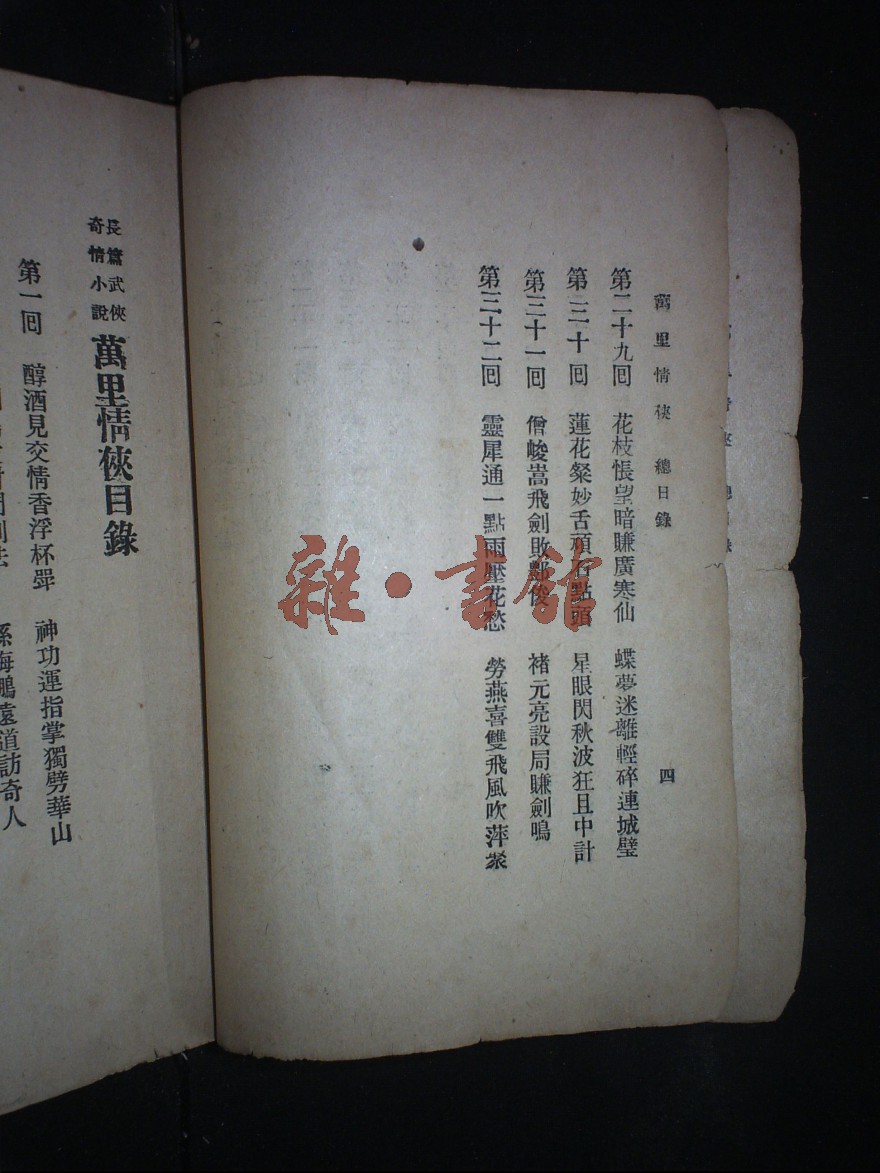 萬里情俠 總目錄 四
第二十九回 花枝悵望暗賺廣寒仙 蝶夢迷離輕碎連城璧
第三十回 蓮花粲妙舌頑石點頭 星眼閃秋波狂且中計
第三十一回 僧峻嵩飛劍敗 俊 褚元亮設局賺劍鳴
第三十二回 靈犀通一點雨壓花愁 勞燕喜雙飛風吹萍聚
長篇武俠
奇情小說
萬里情俠目錄
第一回 醇酒見交情香浮杯斝 神功運指掌獨劈華山
孫海鵬遠道訪奇人
雜·書館